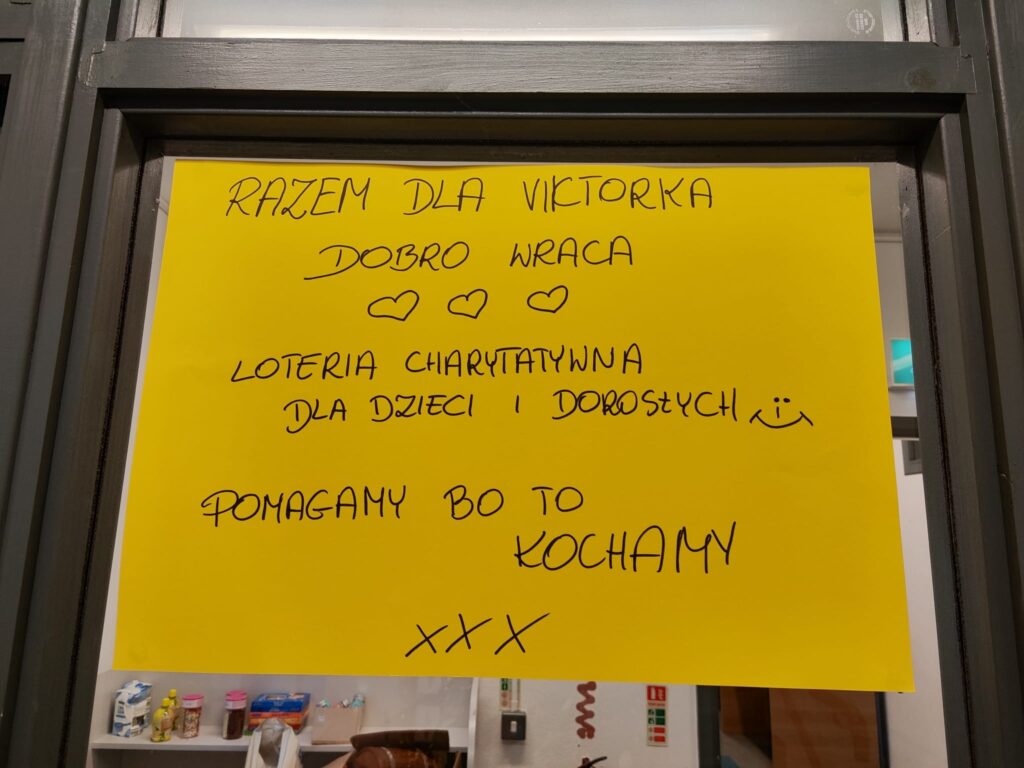 RAZEM DLA VIKTORKA
DOBRO WRACA
♡ ♡ ♡
LOTERIA CHARYTATYWNA
DLA DZIECI I DOROSŁYCH
POMAGAMY BO TO
KOCHAMY
XXX